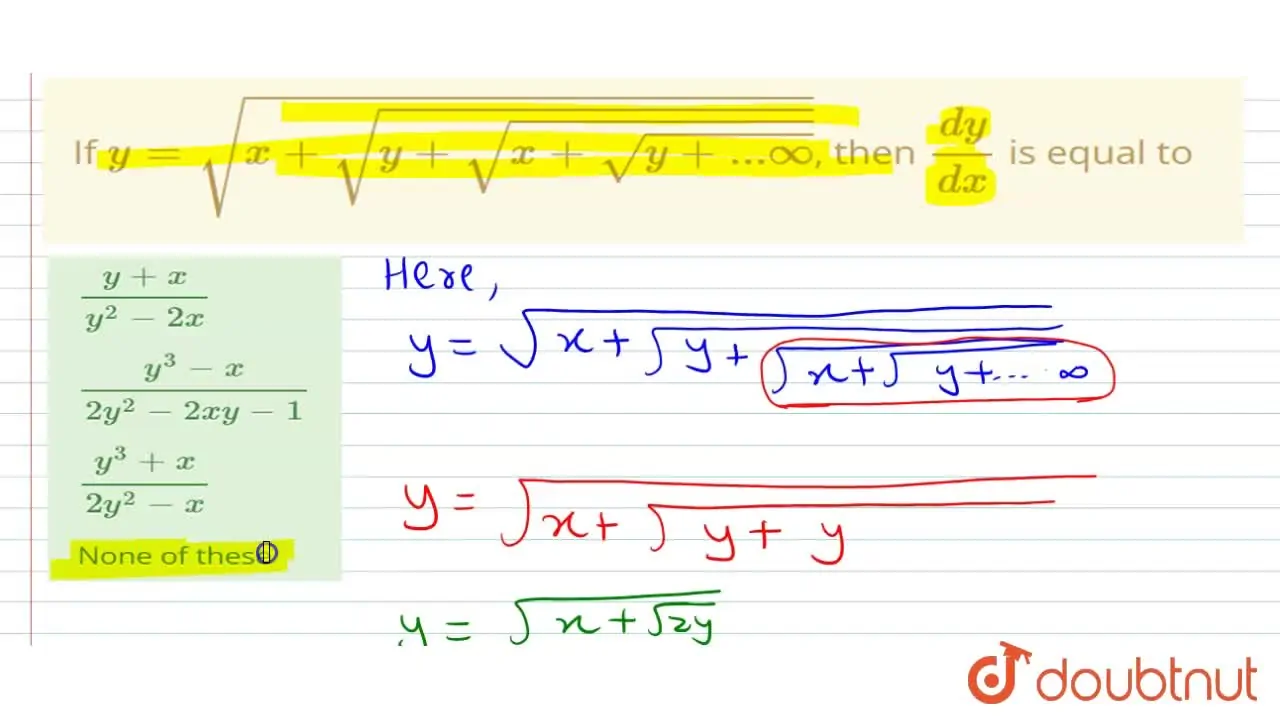 If y = √(x + √(y + √(x + √(y + ...∞)))), then dy/dx is equal to
(y + x)/(y² − 2x)
(y³ − x)/(2y² − 2xy − 1)
(y³ + x)/(2y² − x)
None of these
Here,
y = √(x + √(y + √(x + √(y + ... ∞
y = √(x + √(y + y
y = √(x + √2y
doubtnut